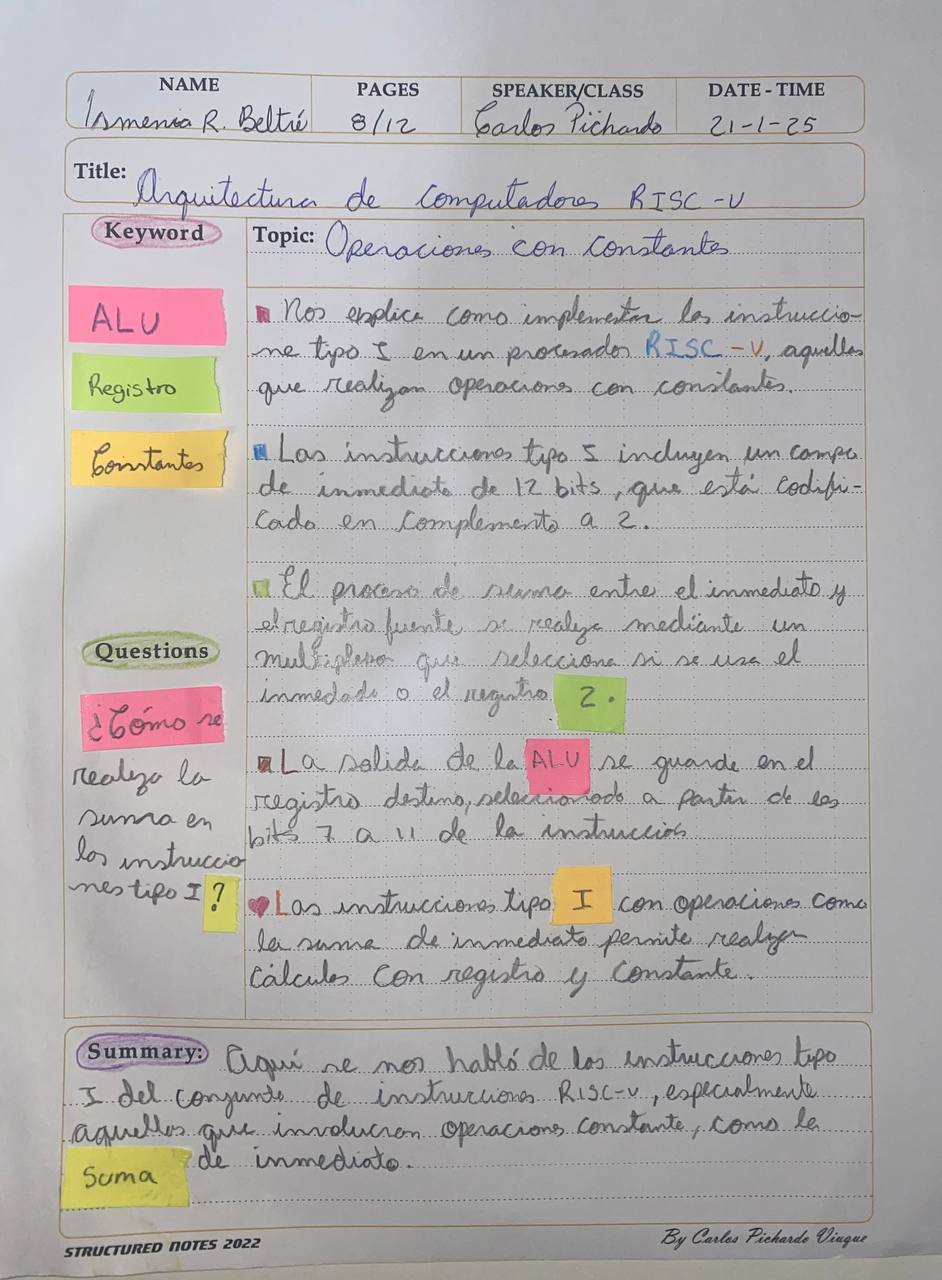 NAME PAGES SPEAKER/CLASS DATE-TIME
Ismenia R. Beltré 8/12 Carlos Pichardo 21-1-25
Title: Arquitectura de Computadores RISC-V
Keyword
ALU
Registro
Constantes
Topic: Operaciones con constantes
Nos esplica como implementar las instruccio-
ne tipo I en un procesados RISC-V, aquellas
que realizan operaciones con constantes.
Las instrucciones tipo I incluyen un campo
de inmediato de 12 bits, que está codifi-
cado en complemento a 2.
El proceso de suma entre el inmediato y
el registro fuente, se realiza mediante un
multiplexo que selecciona si se usa el
inmedado o el registro 2.
La salida de la ALU se guarde en el
registro destino, seleccionado a partir de los
bits 7 a 11 de la instrucción
Las instrucciones tipo I con operaciones como
la suma de inmediato permite realizar
cálculos con registro y constante.
Questions
¿Cómo se
realiza la
suma en
las instruccio
nes tipo I?
Summary: Aquí se nos habló de las instrucciones tipo
I del conjunto de instrucciones RISC-V, especialmente
aquellas que involucran operaciones constante, como la
Suma de inmediato.
STRUCTURED NOTES 2022
By Carlos Pichardo Viuque